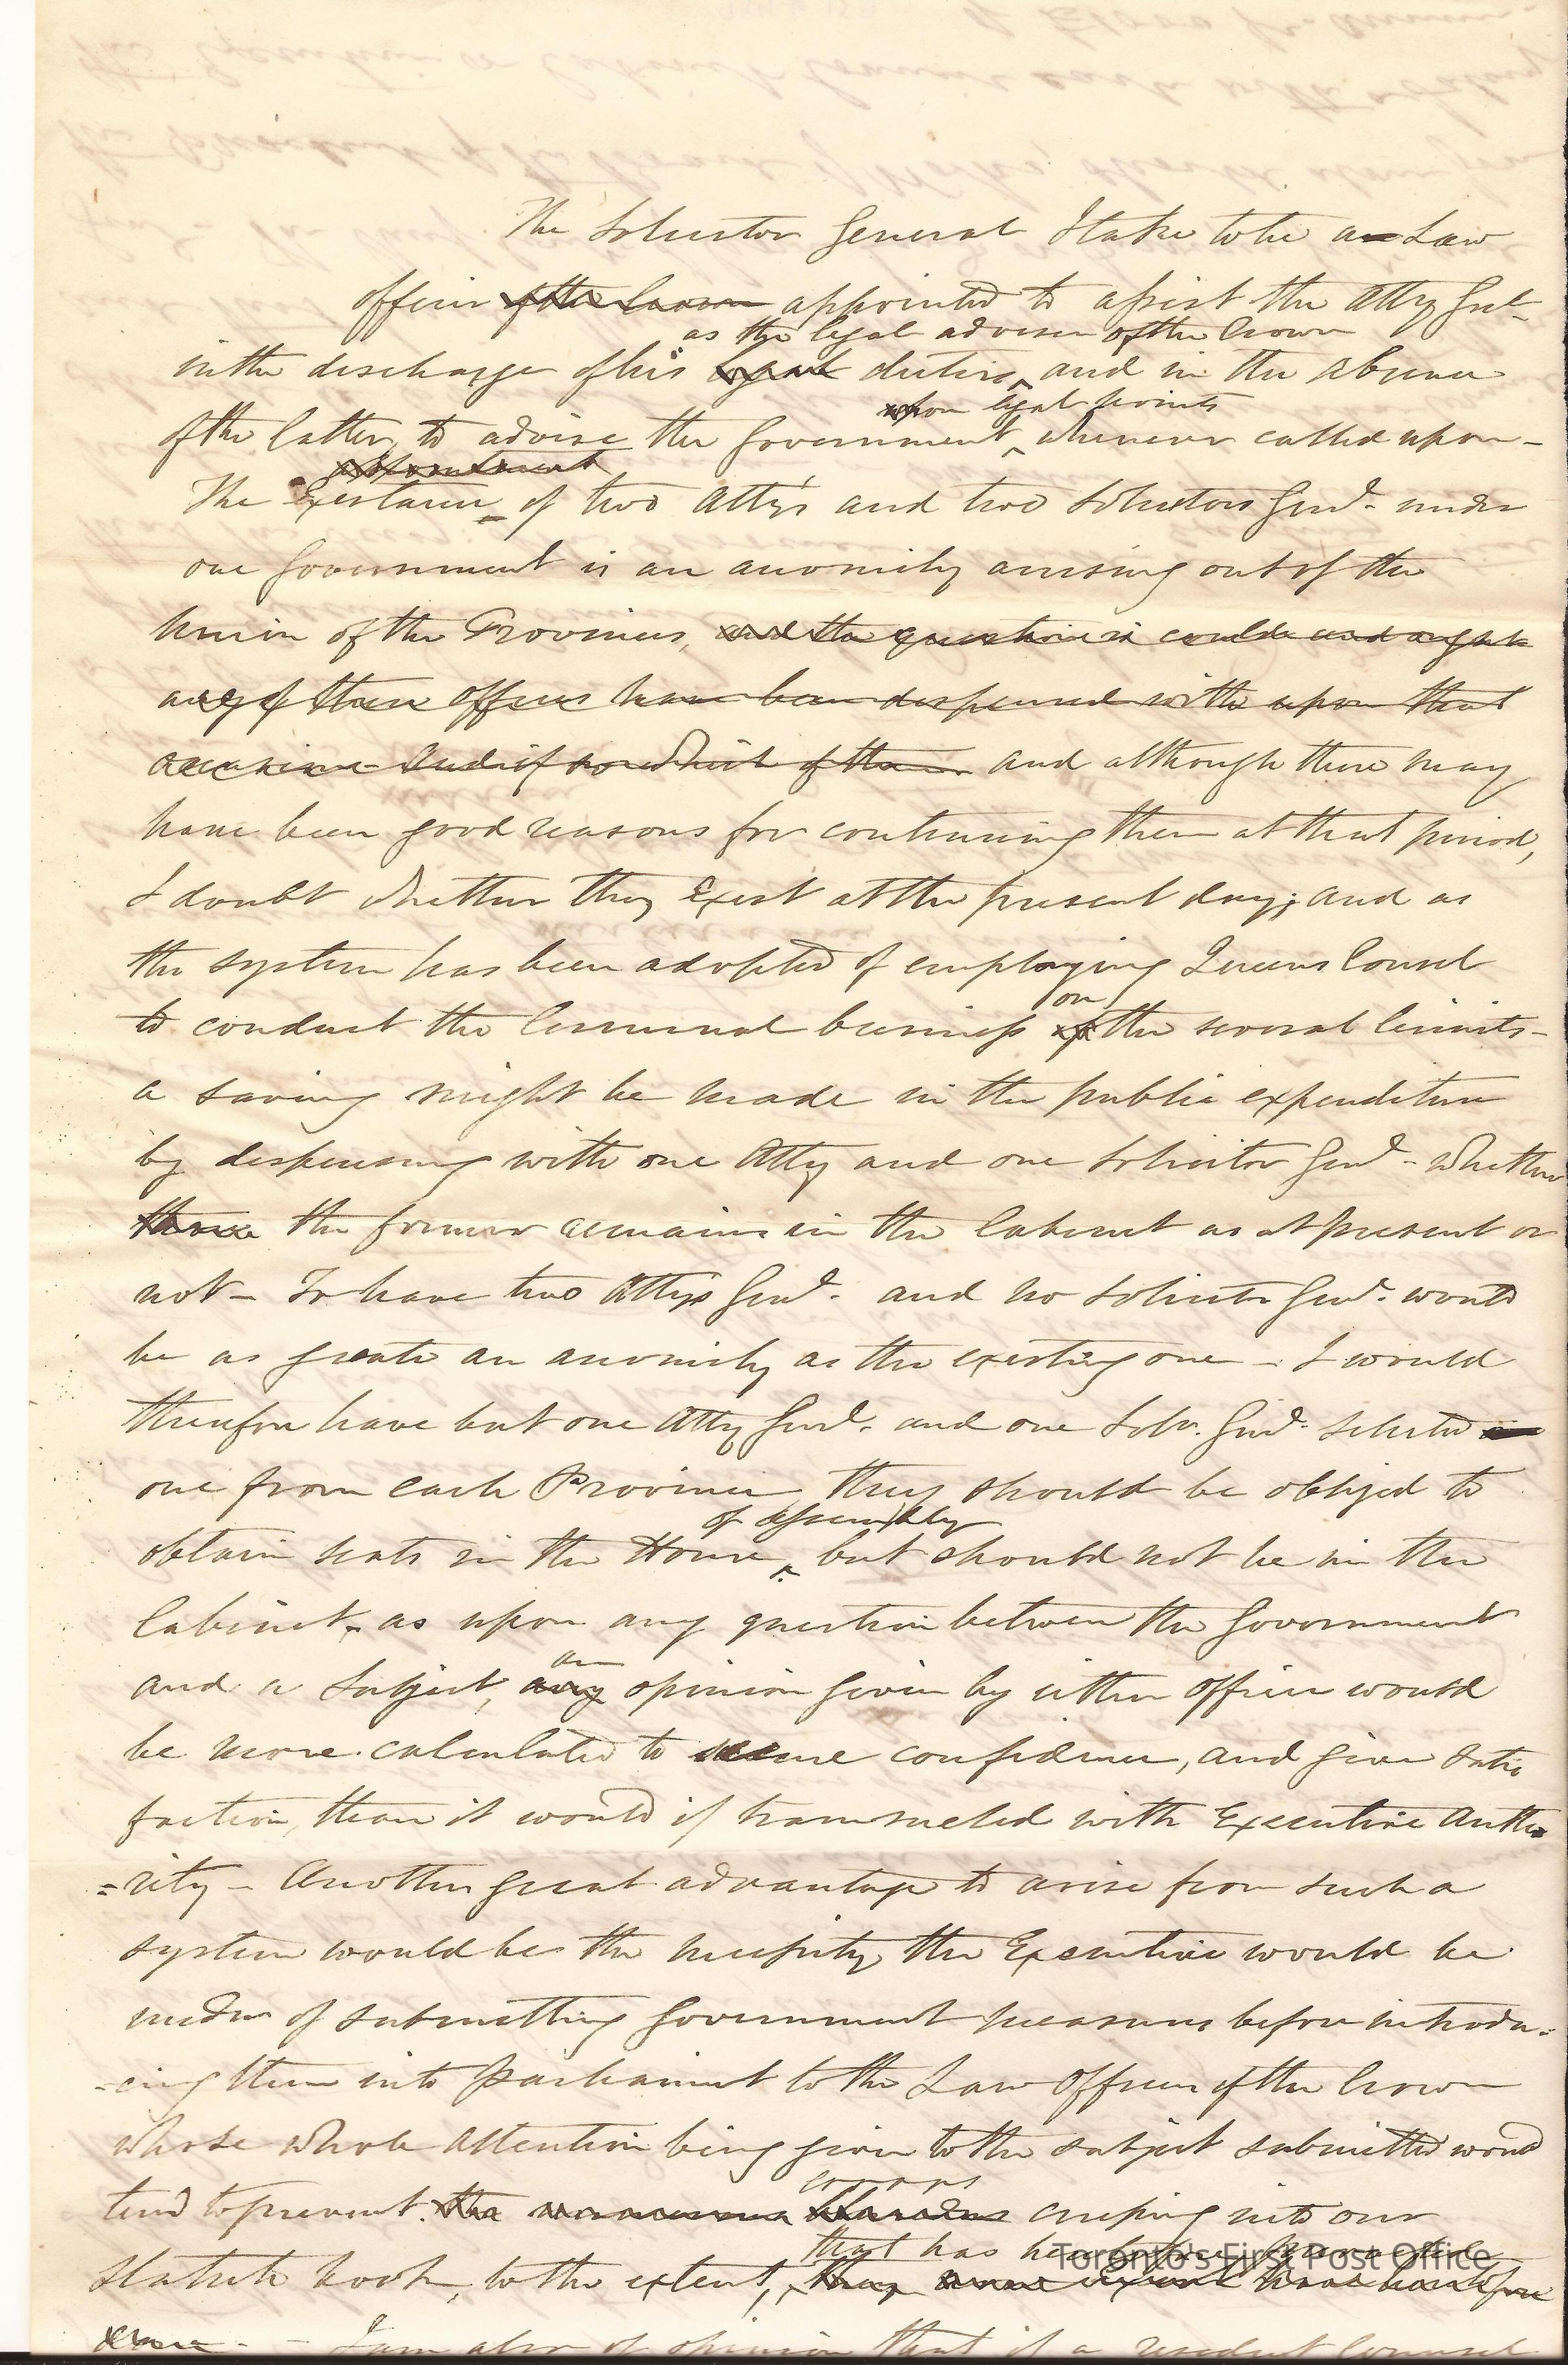 The Solicitor General I take to be a Law
officer of the Crown appointed to assist the Atty Genl
as the legal adviser of the Crown
in the discharge of his legal duties, and in the absence
upon legal points
of the latter, to advise the Government, whenever called upon -
appointment
The Existence of two Atty's and two Solicitors Genl. under
one Government is an anomily arrising out of the
Union of the Provinces, and the question is could and ought
any of these offices have been dispensed with upon that
occasion and if so which of them and although there may
have been good reasons for continuing them at that period,
I doubt whether they Exist at the present day; and as
the system has been adopted of employing Queens Counsel
on
to conduct the Criminal business of the several Circuits -
a saving might be made in the public expenditure
by dispensing with one Atty and one Solicitor Genl - Whether
the former remains in the Cabinet as at present or
not - To have two Attys Genl. and no Solicitor Genl. would
be as greate an anomily as the existing one - I would
therefore have but one Atty Genl. and one Solr. Genl. Selected
one from each Province they should be obliged to
of assembly
obtain seats in the House, but should not be in the
Cabinet, as upon any question between the Government
an
and a Subject, any opinion given by either officer would
be more calculated to secure confidence, and give Satis
faction, than it would if connected with Executive Autho
=rity - Another great advantage to arise from such a
system would be the necessity the Executive would be
under of submitting Government measures before introdu=
=cing them into Parliament to the Law Officers of the Crown
whose whole Attention being given to the subject submitted would
errors
tend to prevent the numerous blunders creeping into our
that has heretofore been done
Statute book, to the extent, they now exist have heretofore
done - I am also of opinion that if a resident Counsel
Toronto's First Post Office